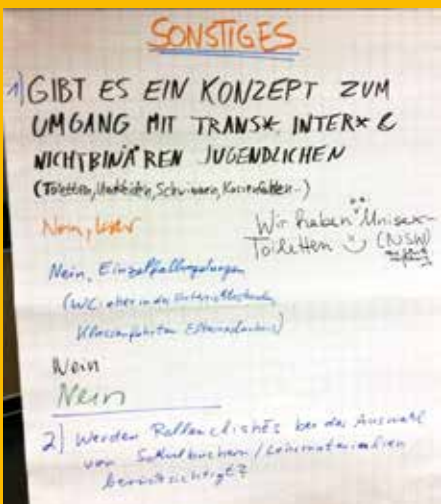 SONSTIGES
1) GIBT ES EIN KONZEPT ZUM
UMGANG MIT TRANS* INTER* &
NICHTBINÄREN JUGENDLICHEN
(Toiletten, Umkleiden, Schwimmen, Klassenfahrten...)
Nein, leider
Wir haben Unisex-
Toiletten (NSW)
Nein, Einzelfallregelungen
(WC: eher in den
Klassenfahrten
Nein
Nein
2) Werden Rollenclishés bei der Auswahl
von Schulbüchern / Lehrmaterialien
berücksichtigt?